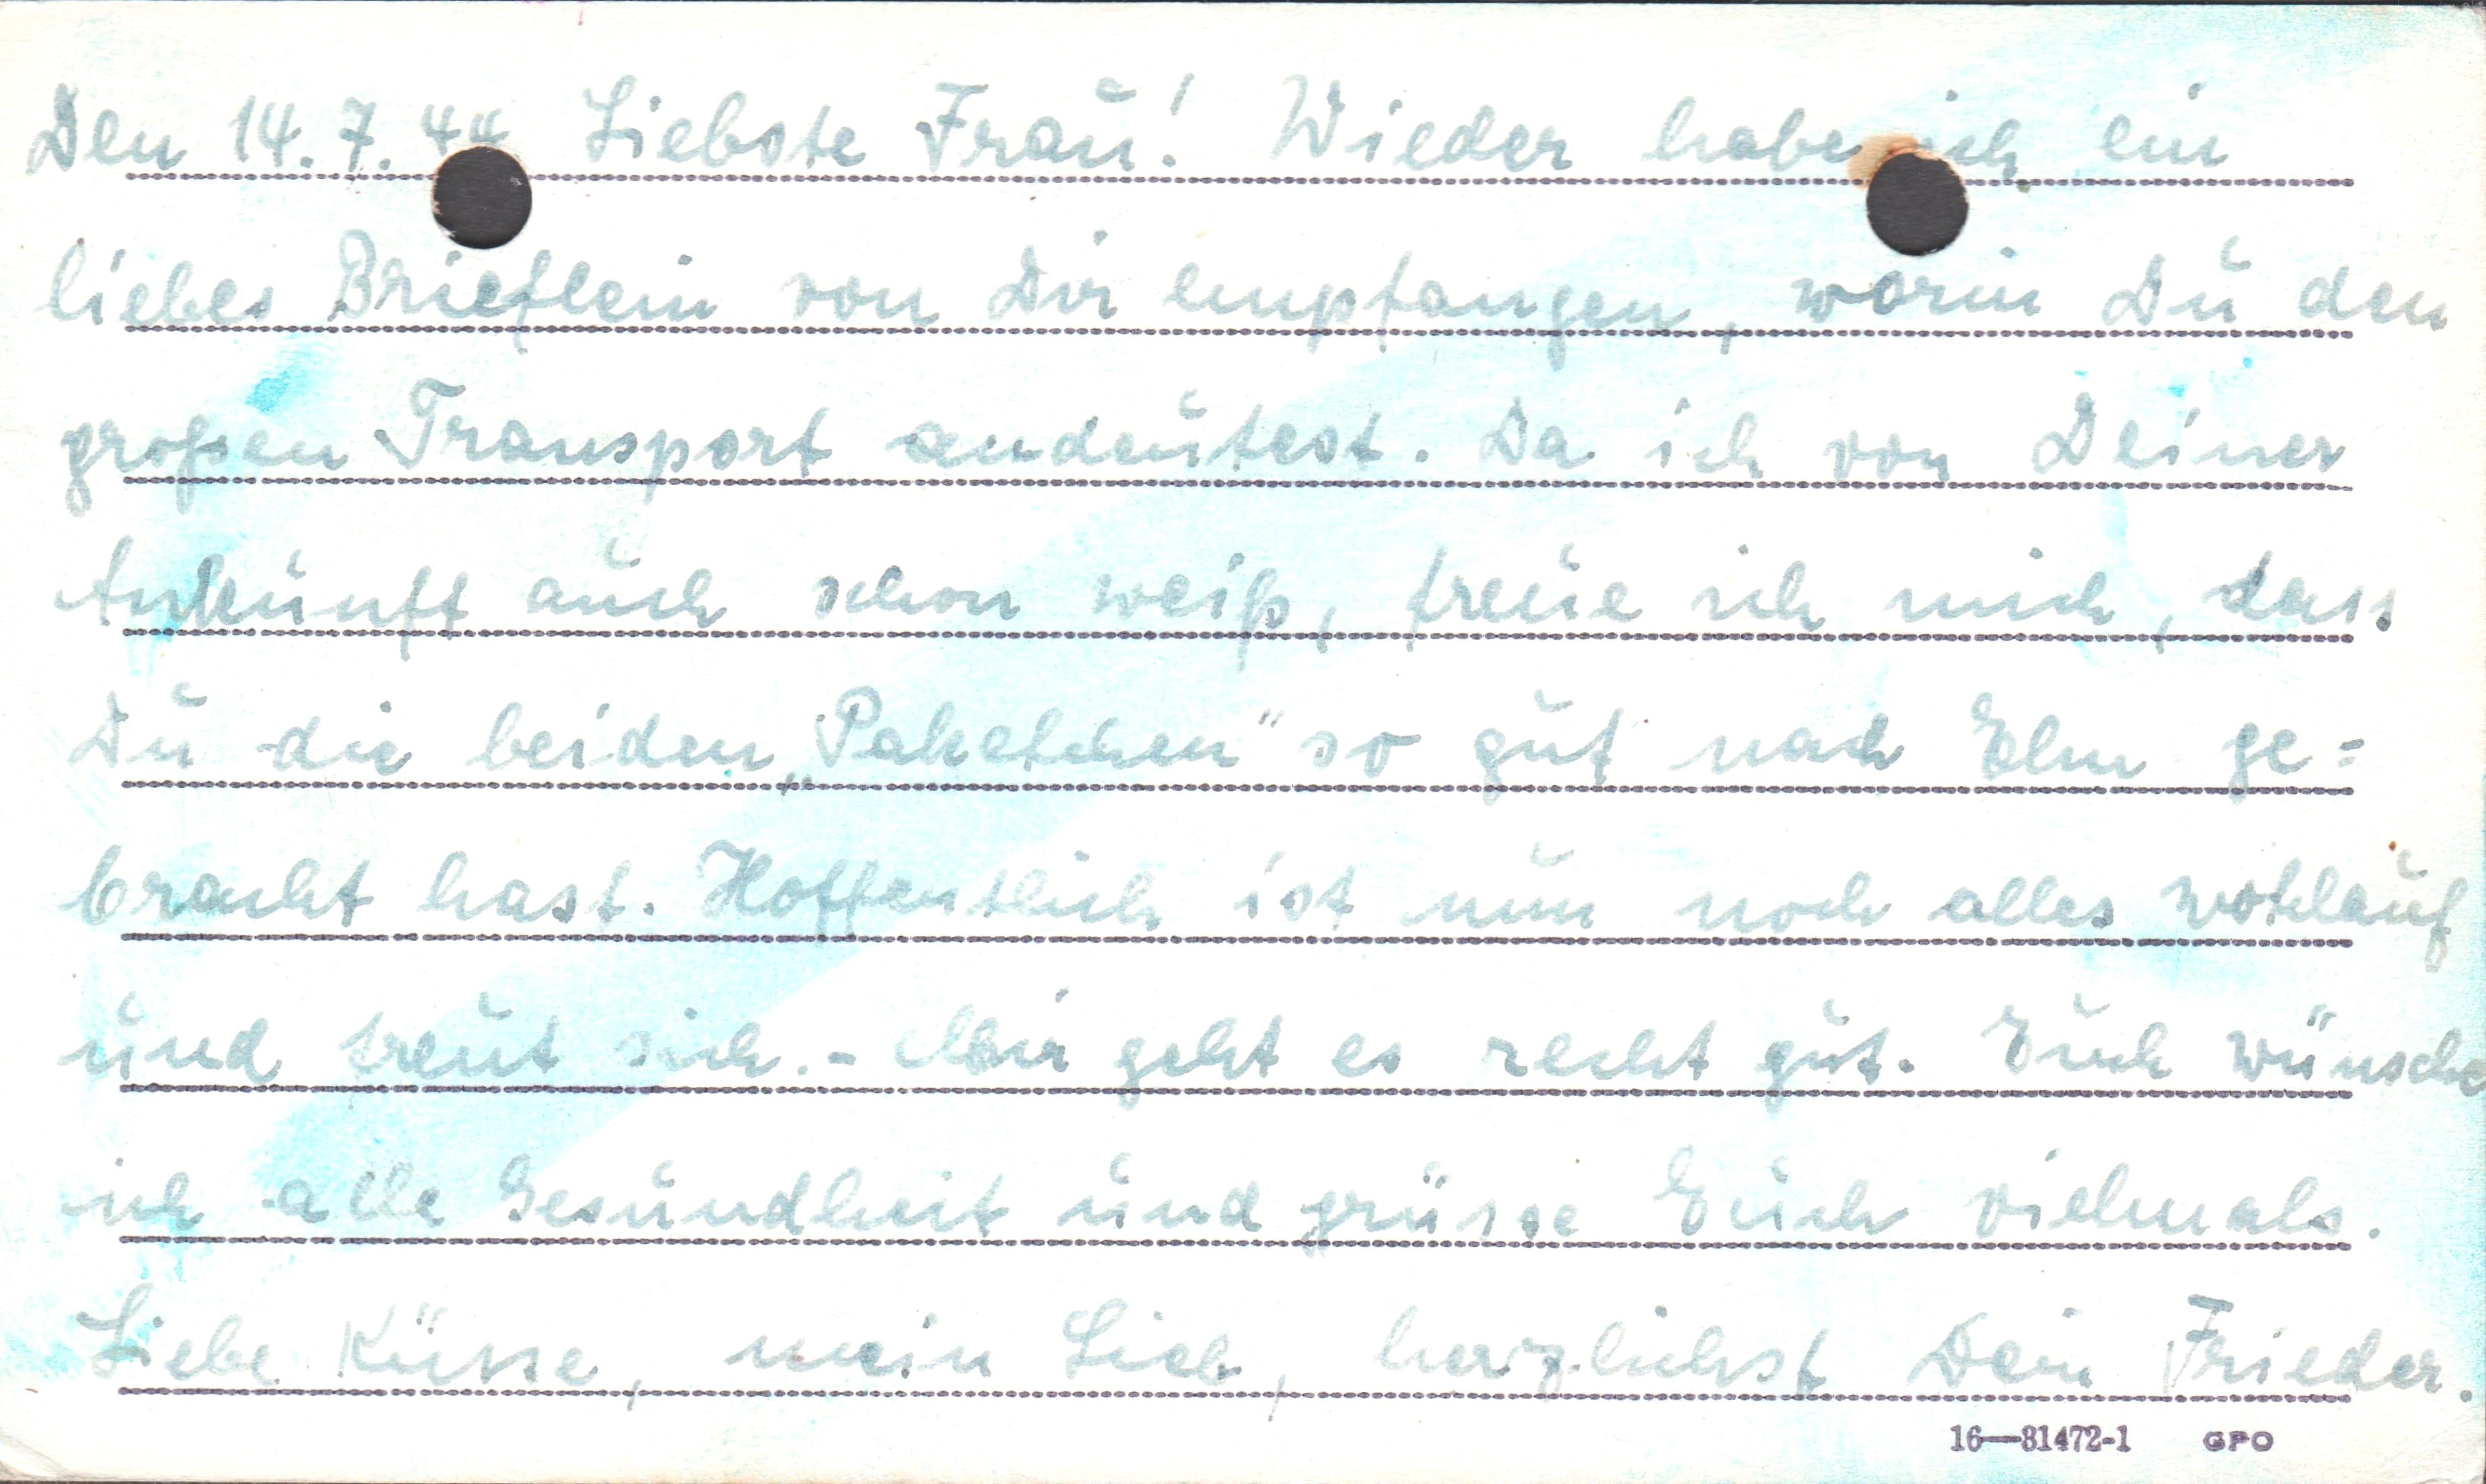 Den 14.7.44 Liebste Frau! Wieder habe ich ein
liebes Brieflein von Dir empfangen, worin Du den
großen Transport andeutest. Da ich von Deiner
Ankunft auch schon weiß, freue ich mich, dass
Du die beiden „Paketchen" so gut nach Elm ge=
bracht hast. Hoffentlich ist nun noch alles wohlauf
und freut sich.- Mir geht es recht gut. Euch wünsche
ich alle Gesundheit und grüsse Euch vielmals.
Liebe Küsse, mein Lieb, herzlichst Dein Frieder.
16—81472-1 GPO